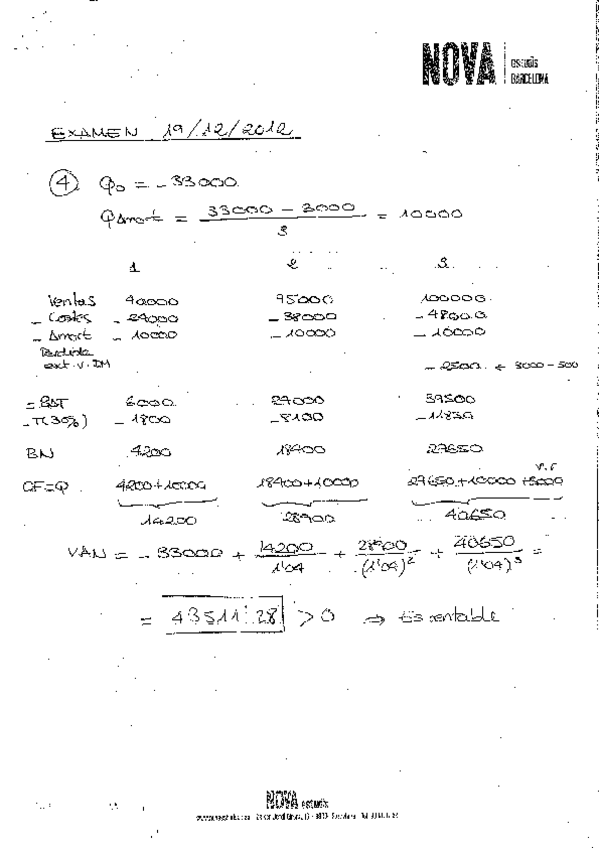 NOVA estudis BARCELONA
EXAMEN 19/12/2012
4 Q0 = -33000
QAmort = 33000 - 3000 / 3 = 10000
1 2 3
Ventas 40000 95000 100000
- Costes - 24000 - 38000 - 48000
- Amort - 10000 - 10000 - 10000
ext. v. IM - 2500 ← 3000 - 500
= BAT 6000 27000 39500
- T(30%) - 1800 - 8100 - 11850
BN 4200 18900 27650
CF=Q 4200+10000 18900+10000 27650+10000+3000 v.r
14200 28900 40650
VAN = - 33000 + 14200/1'04 + 28900/(1'04)² + 40650/(1'04)³ =
= 43511'28 > 0 ⇒ Es rentable
NOVA estudis